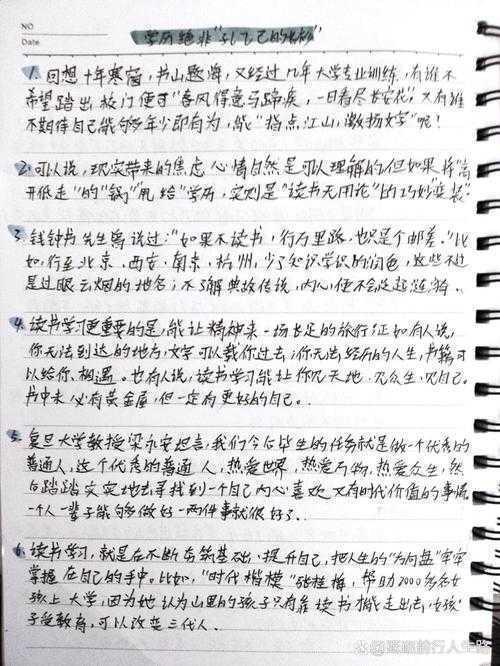 NO
Date
学历绝非“孔乙己的长衫”
1. 回想十年寒窗,书山题海,又经过几年大学专业训练,有谁不
希望踏出校门便可“春风得意马蹄疾,一日看尽长安花”,又有谁
不期待自己能够年少即有为,能“指点江山,激扬文字”呢!
2. 可以说,现实带来的焦虑心情自然是可以理解的但如果将“高
开低走”的“锅”甩给“学历,实则是“读书无用论”的巧妙“变装”
3. 钱钟书先生曾说过:“如果不读书,行万里路,也只是个邮差。”比
如,行至北京、西安、南京、杭州,少了知识学识的润色,这些不过
是过眼云烟的地名;不了解典故传说,内心便不会泛起涟漪。
4. 读书学习更重要的是,能让精神来一场长足的旅行正如有人说,
你无法到达的地方,文字可以载你过去;你无法经历的人生,书籍可
以给你相遇。也有人说,读书学习能让你见天地、见众生、见自己。
书中未必有黄金屋,但一定有更好的自己。
5. 复旦大学教授梁永安坦言,我们今后毕生的任务就是做一个优秀的
普通人,这个优秀的普通人,热爱世界,热爱万物,热爱众生,然
后踏踏实实地去寻找到一个自己内心喜欢又有时代价值的事情
一个人一辈子能够做好一两件事就很好了、
6. 读书学习,就是在不断夯筑基础、提升自己,把人生的“方向盘”牢牢
掌握在自己的手中。比如,“时代楷模”张桂梅,帮助2000多名女
孩上大学,因为她认为山里的孩子只有靠读书才能走出去,女孩
子受教育,可以改变三代人.